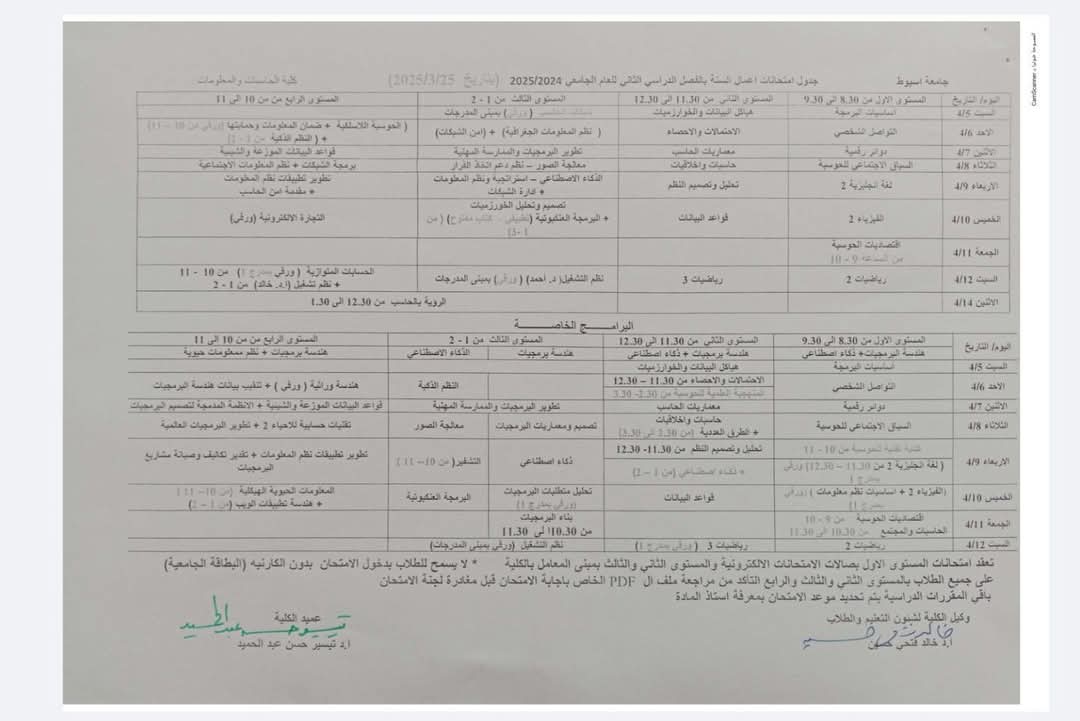 جامعة اسيوط
جدول امتحانات اعمال السنة بالفصل الدراسي الثاني للعام الجامعي 2025/2024 (بتاريخ 2025/3/25)
كلية الحاسبات والمعلومات
اليوم/ التاريخ | المستوى الاول من 8.30 الى 9.30 | المستوى الثاني من 11.30 الى 12.30 | المستوى الثالث من 1 - 2 | المستوى الرابع من 10 الى 11
السبت 4/5 | اساسيات البرمجة | هياكل البيانات والخوارزميات | (ورقي) بمبنى المدرجات
الاحد 4/6 | التواصل الشخصي | الاحتمالات والاحصاء | ( نظم المعلومات الجغرافية) + (امن الشبكات) | ( الحوسبة اللاسلكية + ضمان المعلومات وحمايتها (ورقي من 10 – 11)
+ ( النظم الذكية من 1 - 2)
الاثنين 4/7 | دوائر رقمية | معماريات الحاسب | تطوير البرمجيات والممارسة المهنية | قواعد البيانات الموزعة والشبيئية
الثلاثاء 4/8 | السياق الاجتماعي للحوسبة | حاسبات واخلاقيات | معالجة الصور – نظم دعم اتخاذ القرار | برمجة الشبكات + نظم المعلومات الاجتماعية
الاربعاء 4/9 | لغة انجليزية 2 | تحليل وتصميم النظم | الذكاء الاصطناعي – استراتيجية ونظم المعلومات
+ ادارة الشبكات | تطوير تطبيقات نظم المعلومات
+ مقدمة امن الحاسب
الخميس 4/10 | الفيزياء 2 | قواعد البيانات | تصميم وتحليل الخورزميات
+ البرمجة العنكبوتية (تطبيقي - كتاب مفتوح) ( من
1 -3) | التجارة الالكترونية (ورقي)
الجمعة 4/11 | اقتصاديات الحوسبة
من الساعة 9 - 10
السبت 4/12 | رياضيات 2 | رياضيات 3 | نظم التشغيل( د. أحمد) (ورقي) بمبنى المدرجات | الحسابات المتوازية ( ورقي بمدرج 1) من 10 - 11
+ نظم تشغيل (ا.د. خالد) من 1 - 2
الاثنين 4/14 | الروية بالحاسب من 12.30 الى 1.30
البرامــــــج الخاصـــــــة
اليوم/ التاريخ | المستوى الاول من 8.30 الى 9.30 | المستوى الثاني من 11.30 الى 12.30 | المستوى الثالث من 1 - 2 | المستوى الرابع من 10 الى 11
هندسة البرمجيات+ ذكاء اصطناعي | هندسة برمجيات + ذكاء اصطناعي | هندسة برمجيات | الذكاء الاصطناعي | هندسة برمجيات + نظم ممعلومات حيوية
السبت 4/5 | اساسيات البرمجة | هياكل البيانات والخوارزميات
الاحد 4/6 | التواصل الشخصي | الاحتمالات والاحصاء من 11.30 – 12.30
المنهجية العلمية للحوسبة من 2.30- 3.30 | النظم الذكية | هندسة وراثية ( ورقي ) + تنقيب بيانات هندسة البرمجيات
الاثنين 4/7 | دوائر رقمية | معماريات الحاسب | تطوير البرمجيات والممارسة المهنية | قواعد البيانات الموزعة والشبيئية + الانظمة المدمجة لتصميم البرمجيات
الثلاثاء 4/8 | السياق الاجتماعي للحوسبة | حاسبات واخلاقيات
+ الطرق العددية (من 2.30 الى 3.30) | تصميم ومعماريات البرمجيات | معالجة الصور | تقنيات حسابية للاحياء 2 + تطوير البرمجيات العالمية
الاربعاء 4/9 | كتابة تقنية للحوسبة من 10 - 11
( لغة انجليزية 2 من 11.30 – 12.30) ورقي
بمدرج 1 | تحليل وتصميم النظم من 11.30- 12.30
+ ذكاء اصطناعي (من 1 – 2) | ذكاء اصطناعي | التشفير( من 10– 11 ) | تطوير تطبيقات نظم المعلومات + تقدير تكاليف وصيانة مشاريع
البرمجيات
الخميس 4/10 | (الفيزياء 2 + اساسيات نظم معلومات ) (ورقي
بمدرج 1) | قواعد البيانات | تحليل متطلبات البرمجيات
(ورقي بمدرج 1) | البرمجة العنكبوتية | المعلومات الحيوية الهيكلية (من 10– 11 )
+ هندسة تطبيقات الويب (من 1 – 2)
الجمعة 4/11 | اقتصاديات الحوسبة من 9 - 10
الحاسبات والمجتمع من 10.30 الى 11.30 | بناء البرمجيات
من 10.30ا لى 11.30
السبت 4/12 | رياضيات 2 | رياضيات 3 ( ورقي بمدرج 1) | نظم التشغيل (ورقي بمبنى المدرجات)
تعقد امتحانات المستوى الاول بصالات الامتحانات الالكترونية والمستوى الثاني والثالث بمبنى المعامل بالكلية * لا يسمح للطلاب بدخول الامتحان بدون الكارنيه (البطاقة الجامعية)
على جميع الطلاب بالمستوى الثاني والثالث والرابع التأكد من مراجعة ملف ال PDF الخاص باجابة الامتحان قبل مغادرة لجنة الامتحان
باقي المقررات الدراسية يتم تحديد موعد الامتحان بمعرفة استاذ المادة
وكيل الكلية لشئون التعليم والطلاب
ا.د خالد فتحي حسين
عميد الكلية
ا.د تيسير حسن عبد الحميد
الممسوحة ضوئيا بـ CamScanner